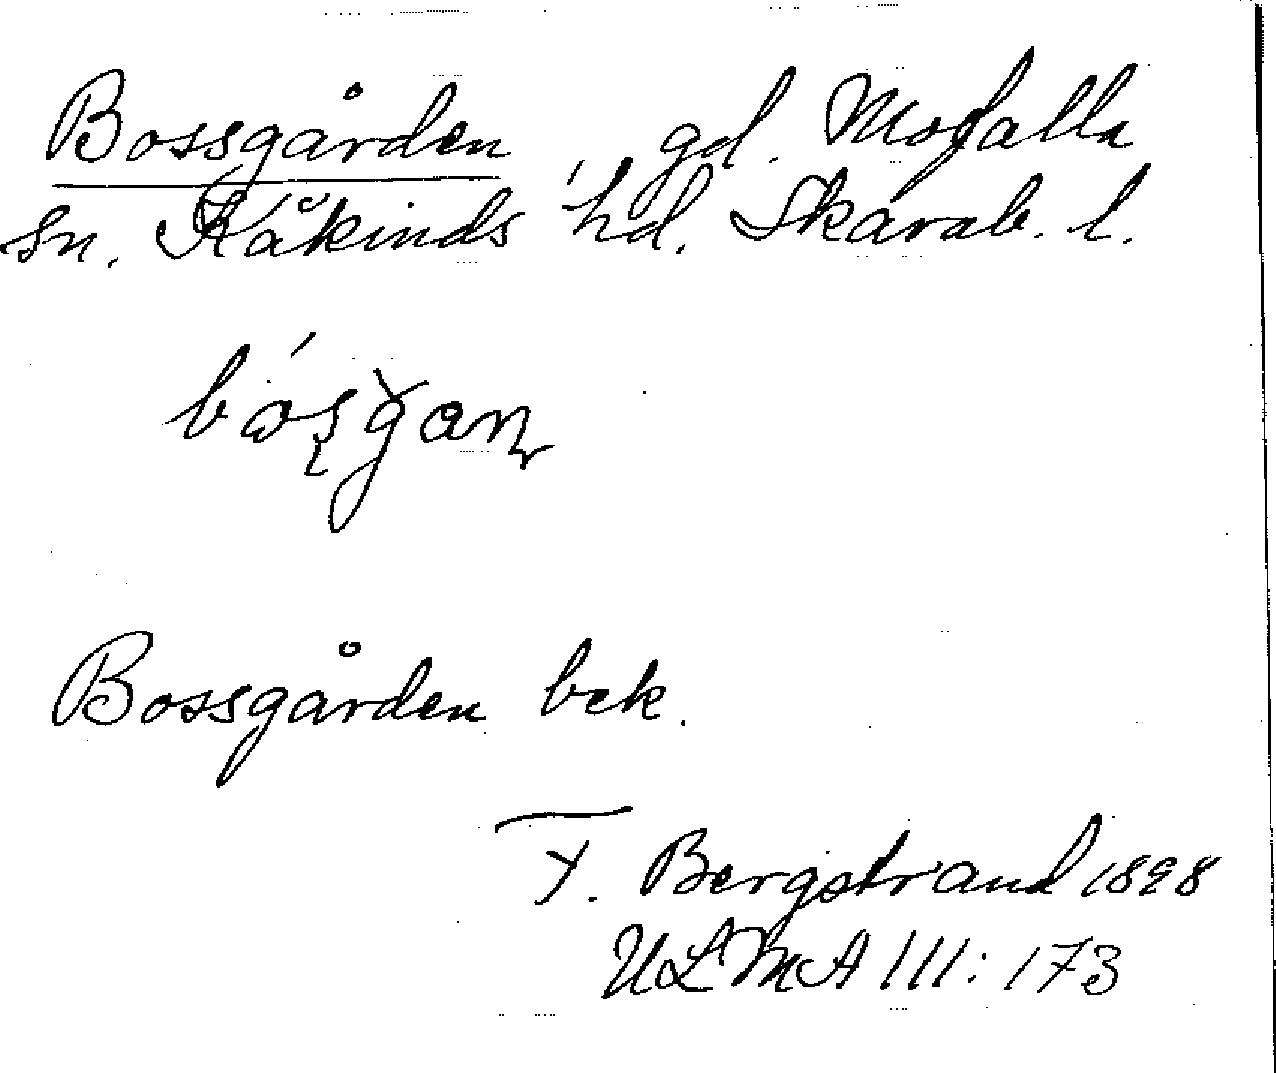 Bossgården gd. Mofalla
sn. Kåkinds hd. Skarab. l.
Bossgården bek.
F. Bergstrand 1898
ULMA 111:173